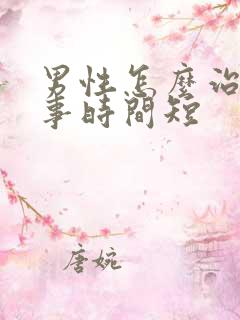 男性怎麽治
事時間短
唐婉